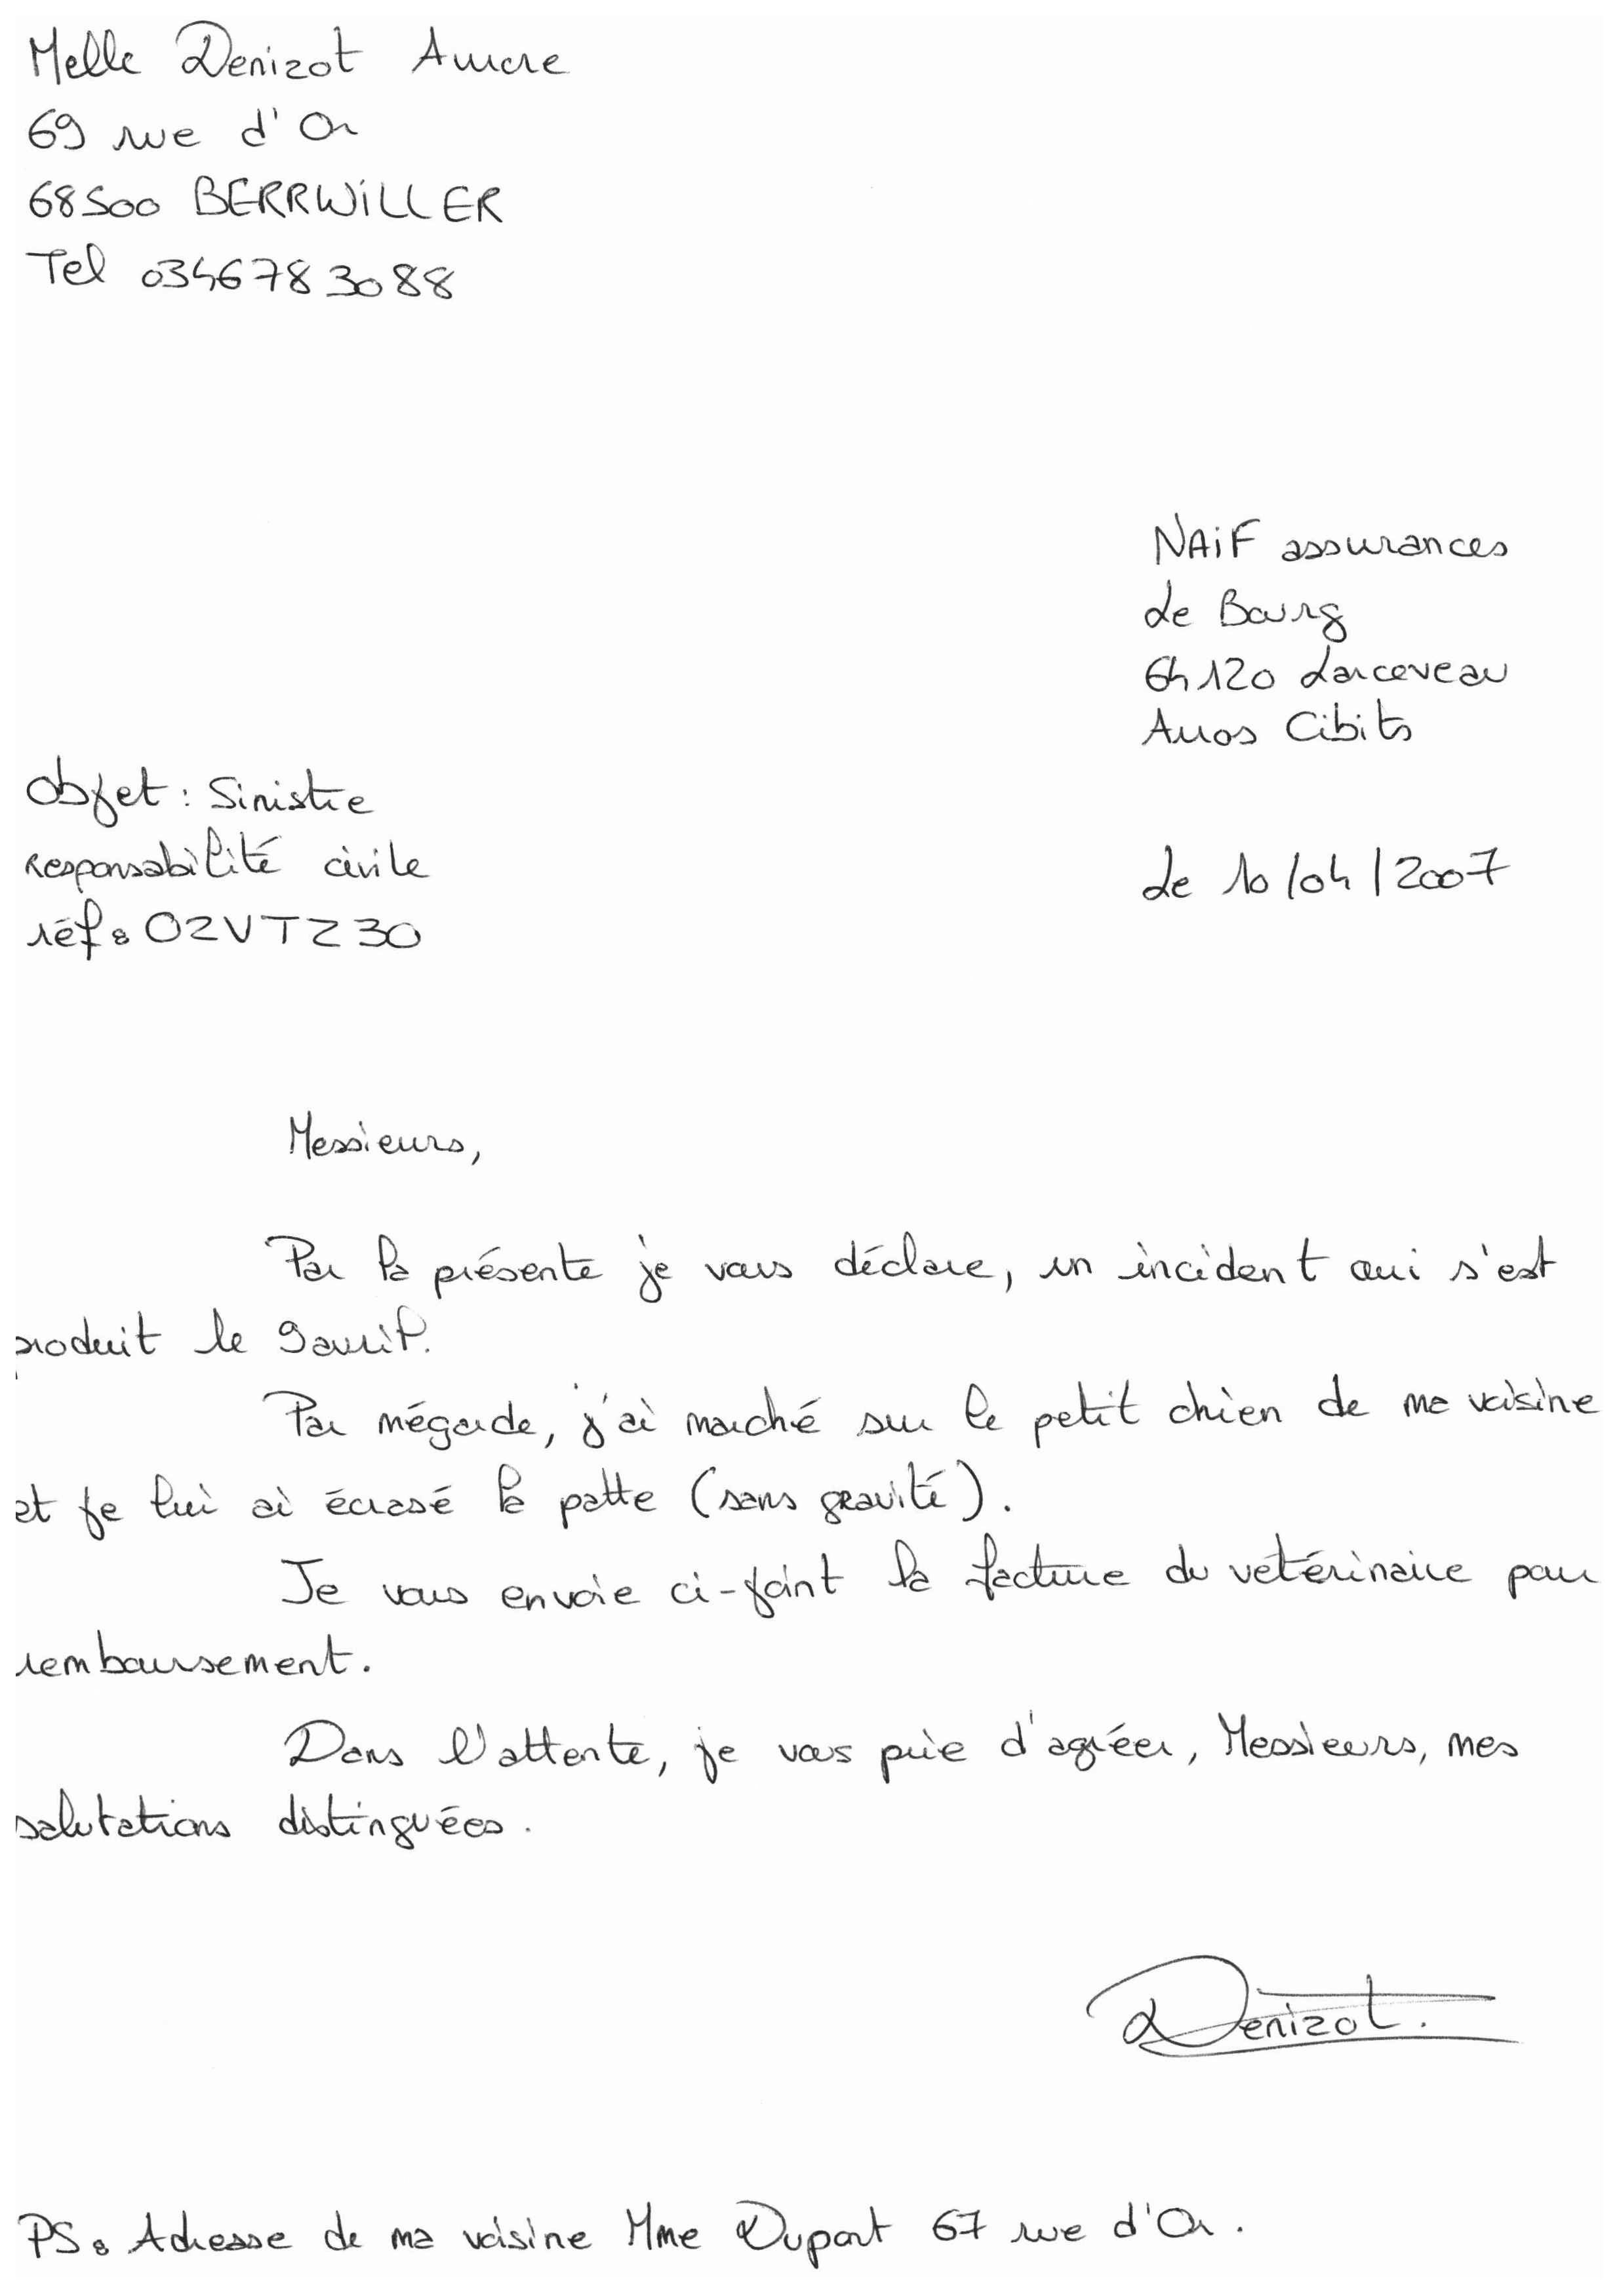 Melle Denizot Aurore
69 rue d'Or
68500 BERRWILLER
Tel 0346783088
NAiF assurances
Le Bourg
64120 Larceveau
Arros Cibits
Objet : Sinistre
responsabilité civile
réf : OZVTZ30
Le 10/04/2007
Messieurs,
Par la présente je vous déclare, un incident qui s'est
produit le 9 avril.
Par mégarde, j'ai marché sur le petit chien de ma voisine
et je lui ai écrasé la patte (sans gravité).
Je vous envoie ci-joint la facture du vetérinaire pour
remboursement.
Dans l'attente, je vous prie d'agréer, Messieurs, mes
salutations distinguées.
Denizot.
PS : Adresse de ma voisine Mme Dupont 67 rue d'Or.